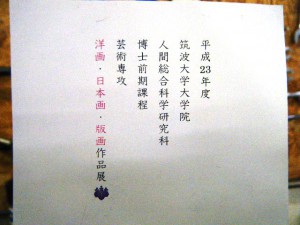 平成23年度
筑波大学大学院
人間総合科学研究科
博士前期課程
芸術専攻
洋画・日本画・版画作品展